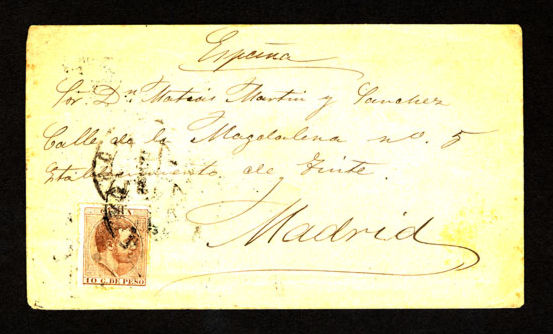 España
Sor. Dn. Matias Martin y Sanchez
Calle de la Magdalena no. 5
Establecimiento de Tinte.
Madrid
10 C. DE PESO